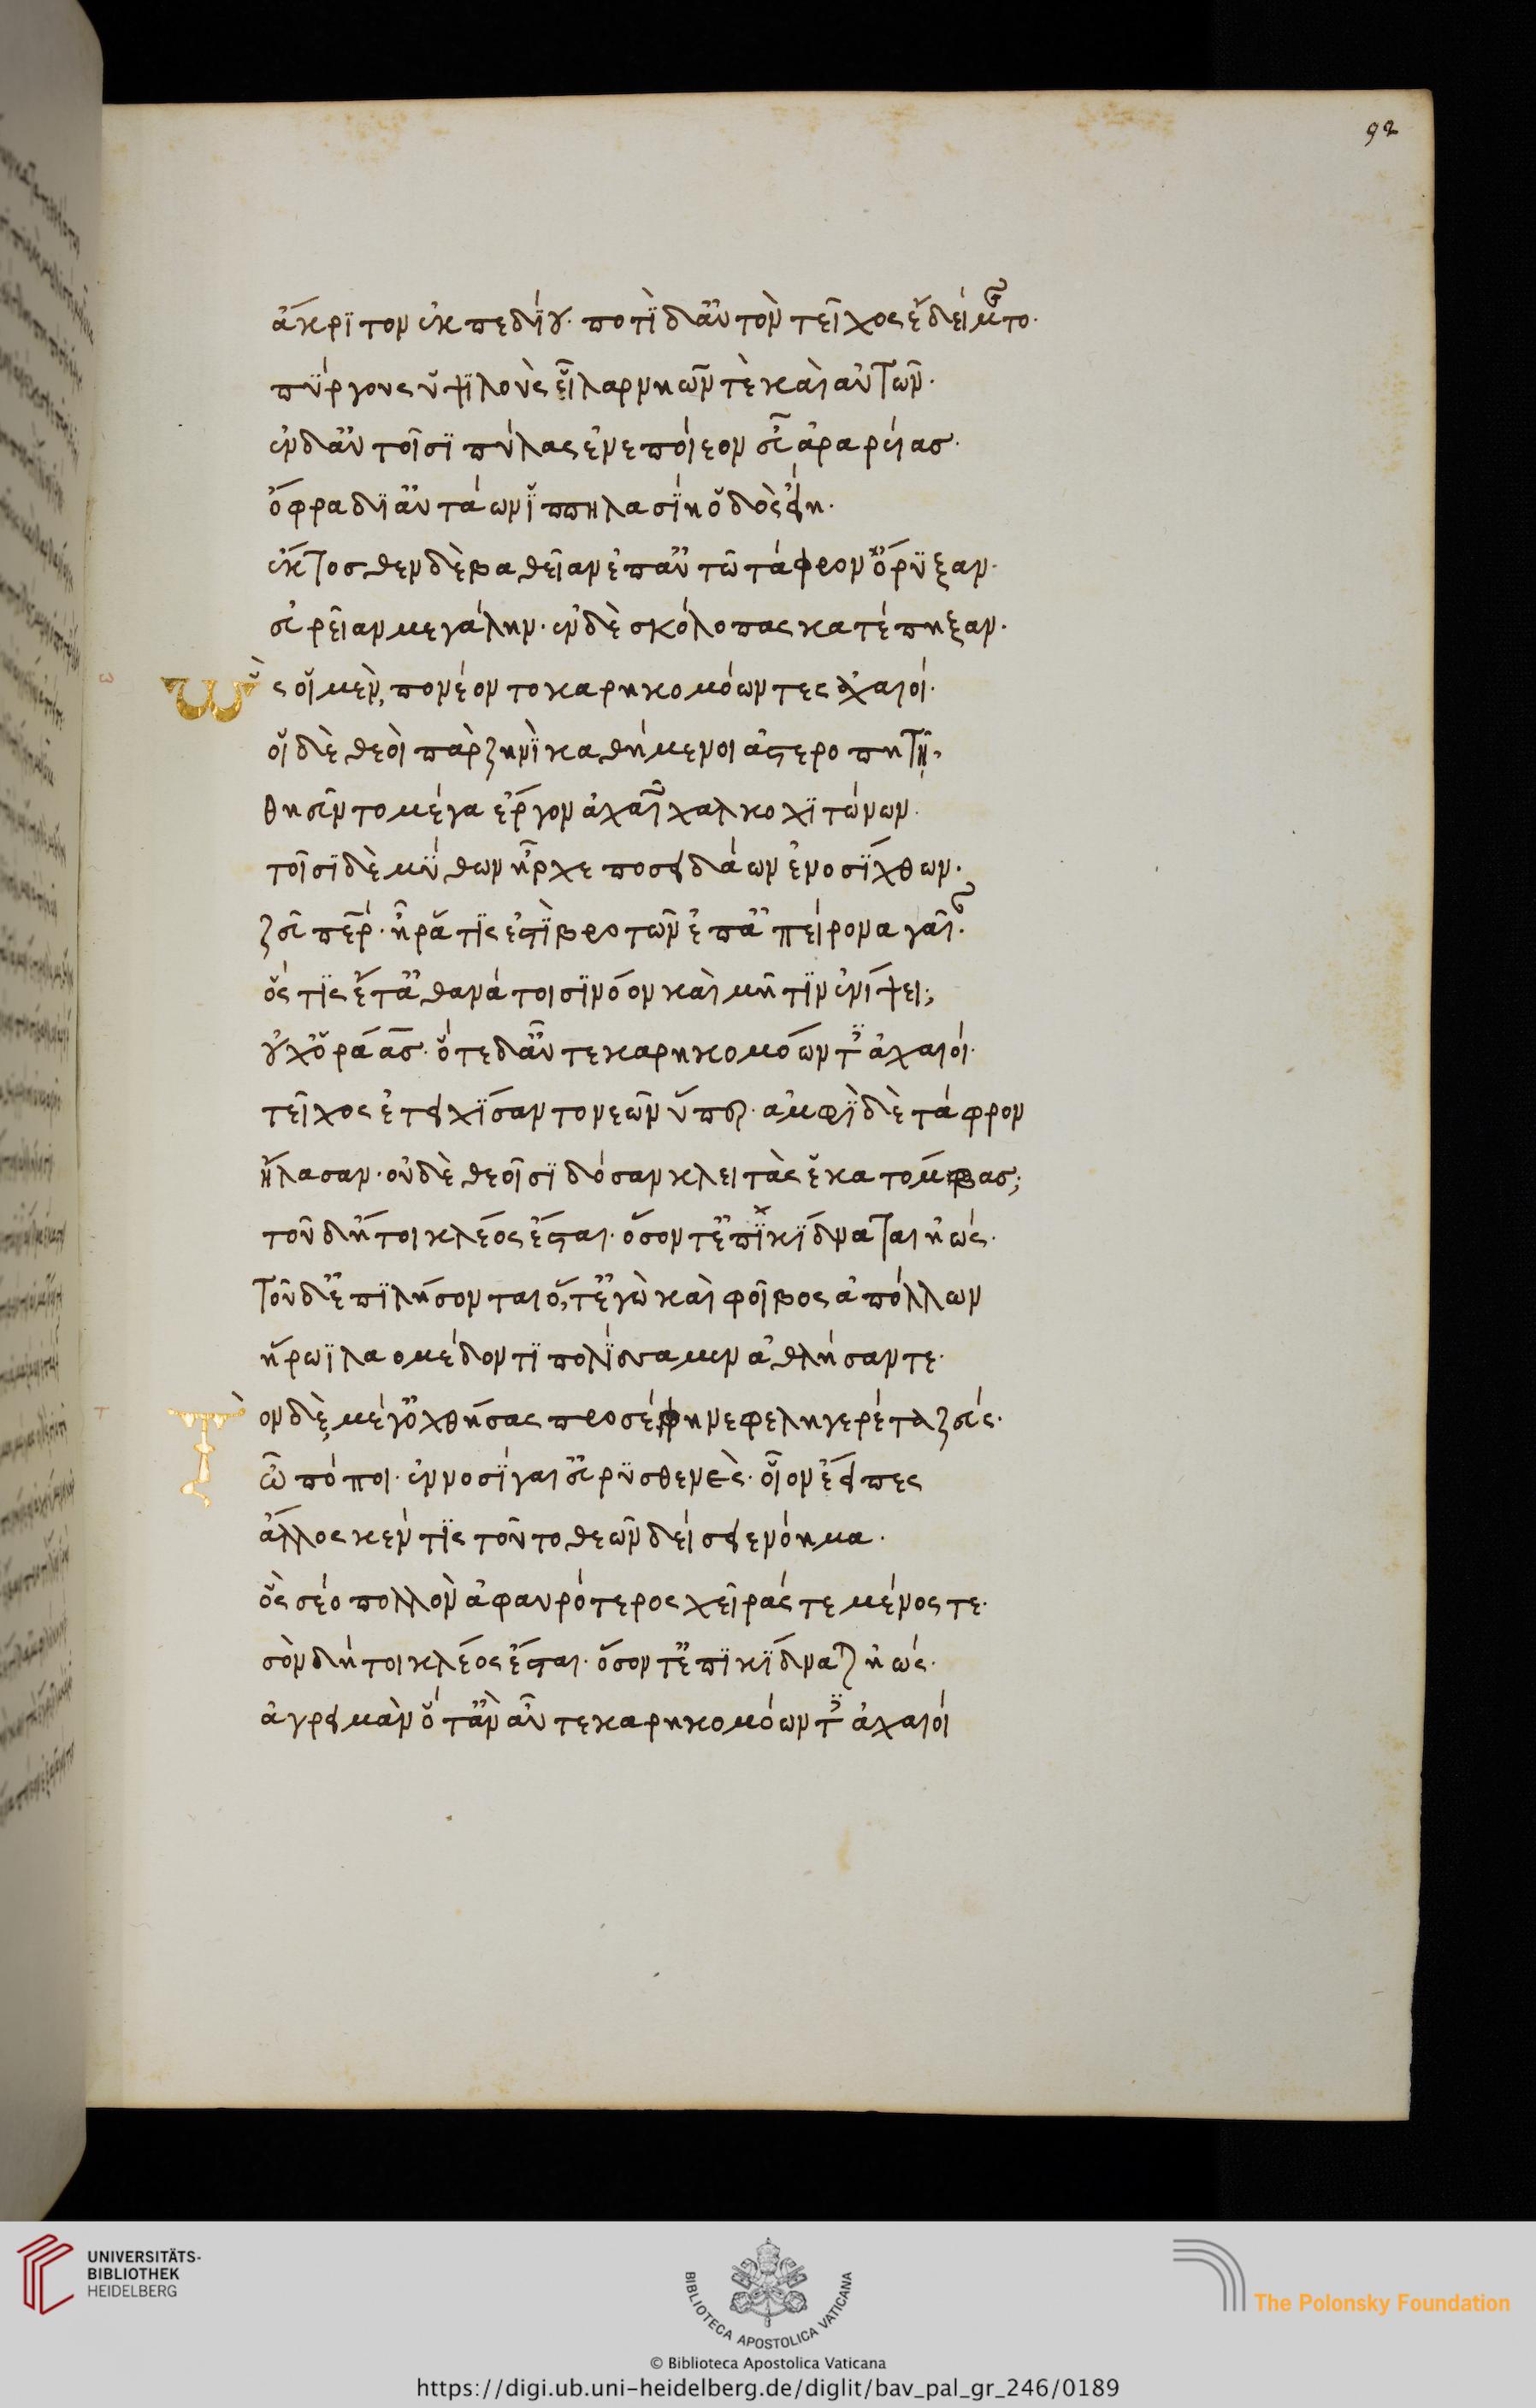 92
ἄκριτον ἐκ πεδίου· ποτὶ δ' αὐτὸν τεῖχος ἔδειμαντο·
πύργους ὑψιλοὺς εἶλαρ νηῶν τὲ καὶ αὐτῶν·
ἐν δ' αὐτοῖσι πύλας ἐνεποίεον εὖ ἀραρείας·
ὄφρα δι' αὐτάων ἱππηλασίη ὁδὸς εἴη·
ἔκτοσθεν δὲ βαθεῖαν ἐπ' αὐτῶ τάφρον ὄρυξαν·
εὐρεῖαν μεγάλην· ἐν δὲ σκόλοπας κατέπηξαν·
ω
Ὣς οἱ μὲν πονέοντο καρηκομόωντες ἀχαιοί·
οἱ δὲ θεοὶ πὰρ ζηνὶ καθήμενοι ἀστεροπητῆ,
θηεῦντο μέγα ἔργον ἀχαιῶν χαλκοχιτώνων·
τοῖσι δὲ μύθων ἦρχε ποσειδάων ἐνοσίχθων·
ζεῦ πέρ· ἦ ῥά τίς ἐστὶ βροτῶν ἐπ' ἀπείρονα γαῖαν·
ὅς τις ἔτ' ἀθανάτοισι νόον καὶ μῆτιν ἐνίψει;
οὐχ ὁράας· ὅτε δ' αὖτε καρηκομόωντες ἀχαιοί·
τεῖχος ἐτειχίσαντο νεῶν ὕπερ· ἀμφὶ δὲ τάφρον
ἤλασαν· οὐδὲ θεοῖσι δόσαν κλειτὰς ἑκατόμβας;
τοῦ δή τοι κλέος ἔσται· ὅσον τ' ἐπικίδναται ἠώς·
τοῦ δ' ἐπιλήσονται ὅ, τ' ἐγὼ καὶ φοῖβος ἀπόλλων
ἥρωι λαομέδοντι πολίσσαμεν ἀθλήσαντε·
τ
Τὸν δὲ μέγ' ὀχθήσας προσέφη νεφεληγερέτα ζεύς·
ὢ πόποι· ἐννοσίγαι' εὐρυσθενὲς· οἷον ἔειπες
ἄλλος κέν τις τοῦτο θεῶν δείσειε νόημα·
ὃς σέο πολλὸν ἀφαυρότερος χεῖράς τε μένος τε·
σὸν δή τοι κλέος ἔσται· ὅσον τ' ἐπικίδναται ἠώς·
ἄγρει μὰν ὅτ' ἂν αὖτε καρηκομόωντες ἀχαιοί
UNIVERSITÄTS-
BIBLIOTHEK
HEIDELBERG
BIBLIOTECA APOSTOLICA VATICANA
The Polonsky Foundation
© Biblioteca Apostolica Vaticana
https://digi.ub.uni-heidelberg.de/diglit/bav_pal_gr_246/0189